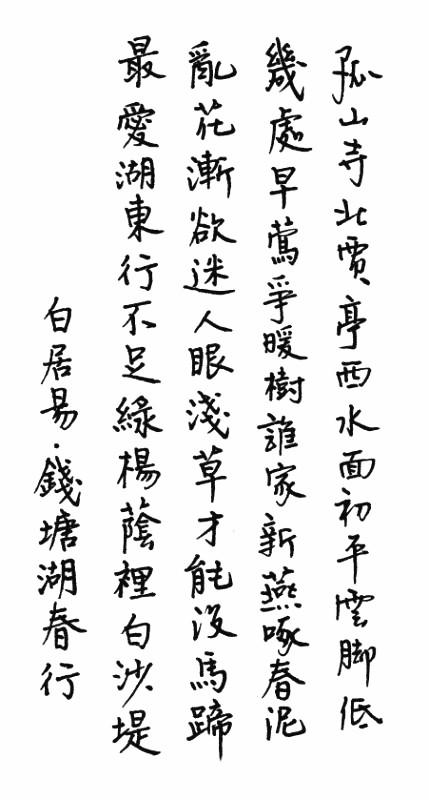 孤山寺北賈亭西水面初平雲脚低
幾處早鶯爭暖樹誰家新燕啄春泥
亂花漸欲迷人眼淺草才能沒馬蹄
最愛湖東行不足綠楊蔭裡白沙堤
白居易·錢塘湖春行